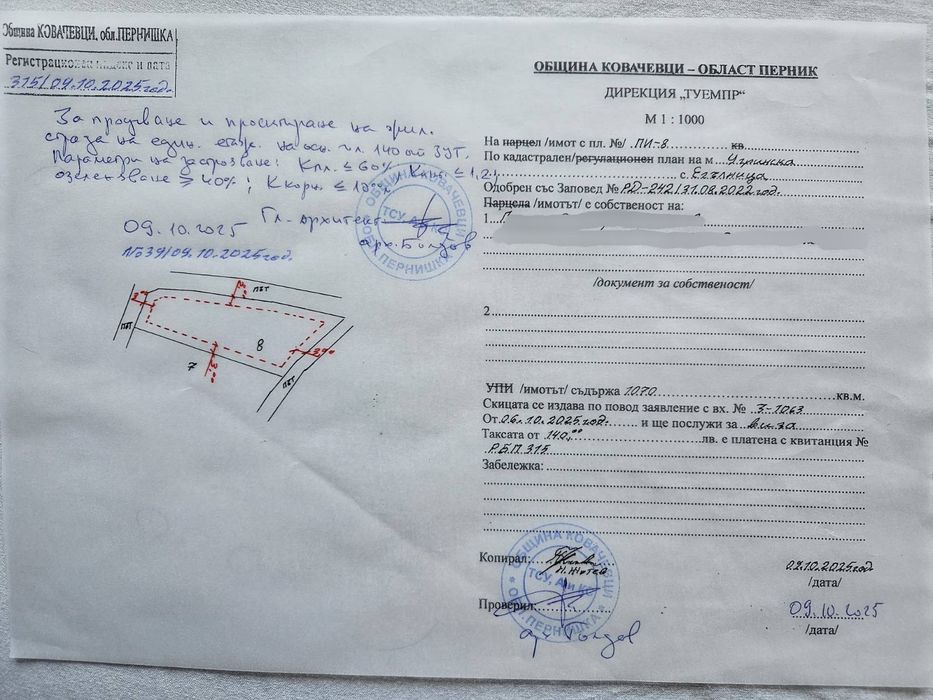 Община КОВАЧЕВЦИ, обл.ПЕРНИШКА
Регистрационен индекс и дата
315/09.10.2025год.
За продаване и проектиране на жил.
сграда на един. етаж. на осн. чл. 140 от ЗУТ.
Параметри на застрояване: Кпл. ≤ 60% Кинт ≤ 1,2;
озеленяване ≥ 40%; Ккорн ≤ 10м
Гл. архитект
09.10.2025
арх. Болдов
№39/09.10.2025год.
ОБЩИНА КОВАЧЕВЦИ
ТСУ, А и КС
ОБЛ. ПЕРНИШКА
път
3.00
3.00
път
8
3.00
7
3.00
път
ОБЩИНА КОВАЧЕВЦИ – ОБЛАСТ ПЕРНИК
ДИРЕКЦИЯ „ТУЕМПР“
М 1 : 1000
На парцел /имот с пл. №/ ПИ-8 кв.
По кадастрален/регулационен план на м. Угринска
с. Егълница
Одобрен със Заповед № РД-242/31.08.2022год.
Парцела /имотът/ е собственост на:
1.
/документ за собственост/
2
УПИ /имотът/ съдържа 1070 кв.м.
Скицата се издава по повод заявление с вх. № З-1063
От 06.10.2025год. и ще послужи за виза
Таксата от 140,00 лв. е платена с квитанция №
Р.Б.П.315
Забележка:
Копирал: 02.10.2025год
/дата/
ОБЩИНА КОВАЧЕВЦИ
ТСУ, А и КС
ОБЛ. ПЕРНИШКА
Проверил: 09.10.2025
/дата/